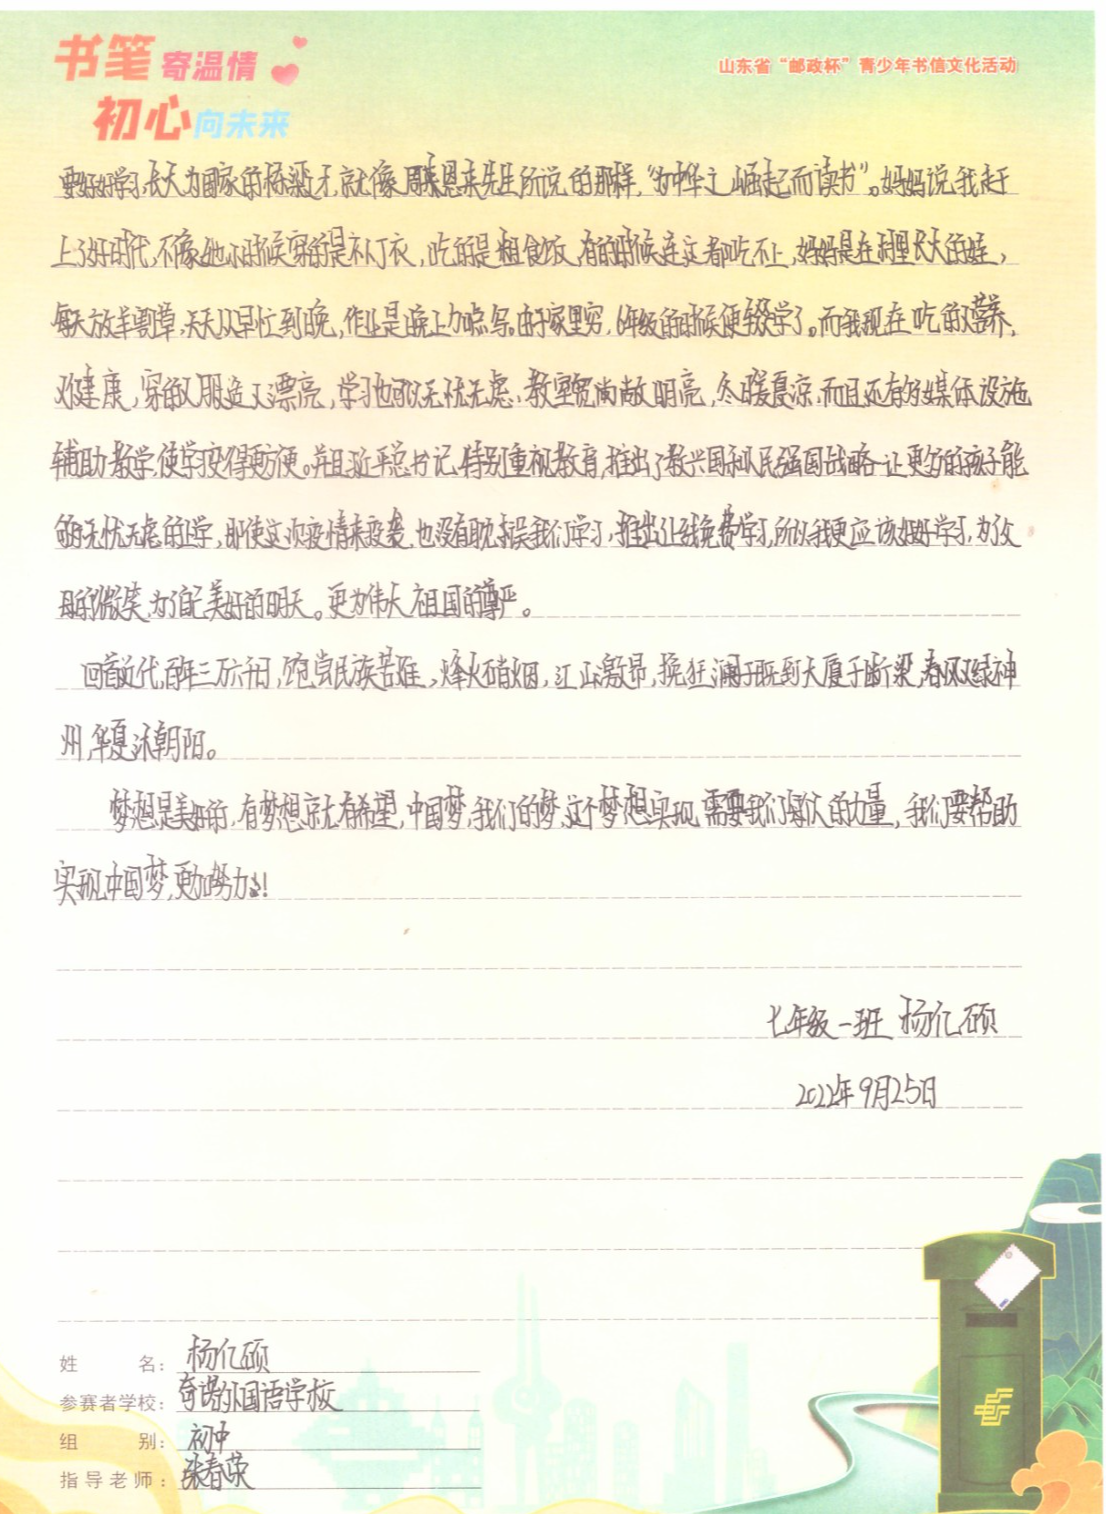 书笔寄温情
初心向未来
山东省“邮政杯”青少年书信文化活动
要好好学习,长大为国家的栋梁才,就像周恩来先生所说的那样,“为中华之崛起而读书”。妈妈说我赶
上了好时代,不像她小时候穿的是补丁衣,吃的是粗食饭,有的时候连这都吃不上,妈妈是在村里长大的娃,
每天放羊割草,天天从早忙到晚,作业是晚上加点写。由于家里穷,6年级的时候便辍学了。而我现在吃的又营养,
又健康,穿的衣服造又漂亮,学习也可以无忧无虑,教室宽尚敞明亮,冬暖夏凉,而且还有多媒体设施
辅助教学,使学变得更方便。并且近平总书记,特别重视教育,推出了教兴国和人民强国战略让更多的孩子能
够无忧无虑的上学,即使这次疫情来袭,也没有耽误我们学习,推出让线免费学习,所以我更应该好好学习,为了父
母的微笑,为了自己美好的明天。更为伟大祖国的尊严。
回首近代,百年三万六千日,饱尝民族苦难,烽火硝烟,江山激昂,挽狂澜于既到大厦于断梁,春风又绿神
州,华夏沐朝阳。
梦想是美好的,有梦想就有希望,中国梦,我们的梦,这个梦想实现,需要我们每人的力量,我们要帮助
实现中国梦,更加努力!
七年级一班 杨亿硕
2022年9月25日
姓 名: 杨亿硕
参赛者学校: 奇诺外国语学校
组 别: 初中
指导老师: 张春荣